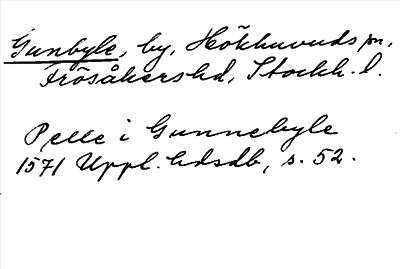 Gunbyle, by, Hökhuvuds sn,
Frösåkershd, Stockh. l.
Pelle i Gunnebyle
1571 Uppl. hdsdb, s. 52.